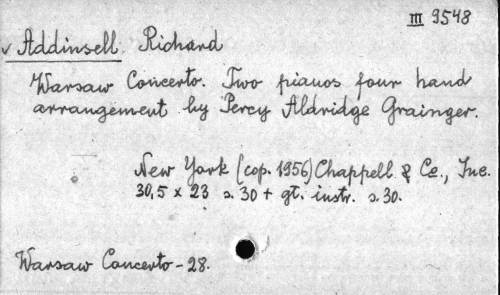 III 9548
v Addinsell Richard
Warsaw Concerto. Two pianos four hand
arrangement by Percy Aldridge Grainger.
New York (cop. 1956) Chappell & Co., Inc.
30,5 x 23 s. 30 + gt. instr. s. 30.
Warsaw Concerto - 28.